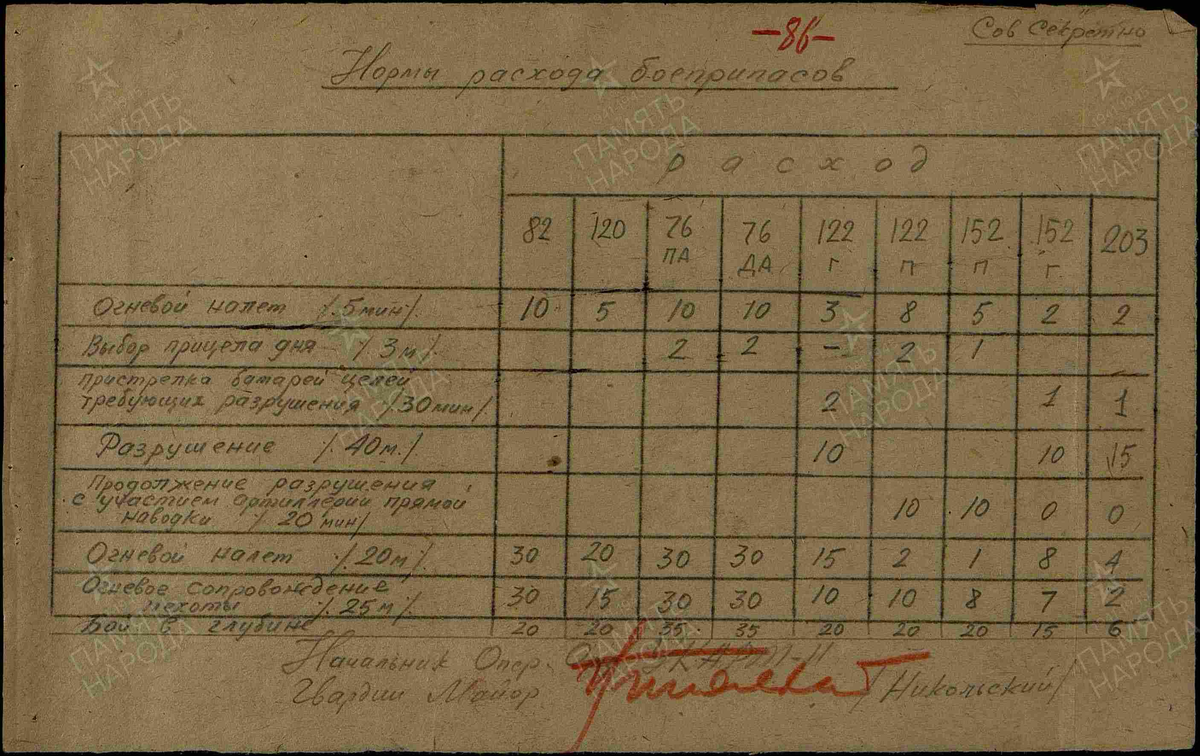 -86-
Сов Секретно
Нормы расхода боеприпасов
Расход
82 120 76 ПА 76 ДА 122 Г 122 П 152 П 152 Г 203
Огневой налет /5мин/. 10 5 10 10 3 8 5 2 2
Выбор прицела дня /3м/. 2 2 - 2 1
Пристрелка батарей целей
требующих разрушения /30мин/ 2 1 1
Разрушение /.40м./ 10 10 15
Продолжение разрушения
с участием артиллерии прямой
наводки /. 20 мин/ 10 10 0 0
Огневой налет /.20м/. 30 20 30 30 15 2 1 8 4
Огневое сопровождение
пехоты /.25м/. 30 15 30 30 10 10 8 7 2
Бой в глубине 20 20 35 35 20 20 20 15 6
Начальник Опер.
Гвардии Майор /Никольский/
ПАМЯТЬ
НАРОДА